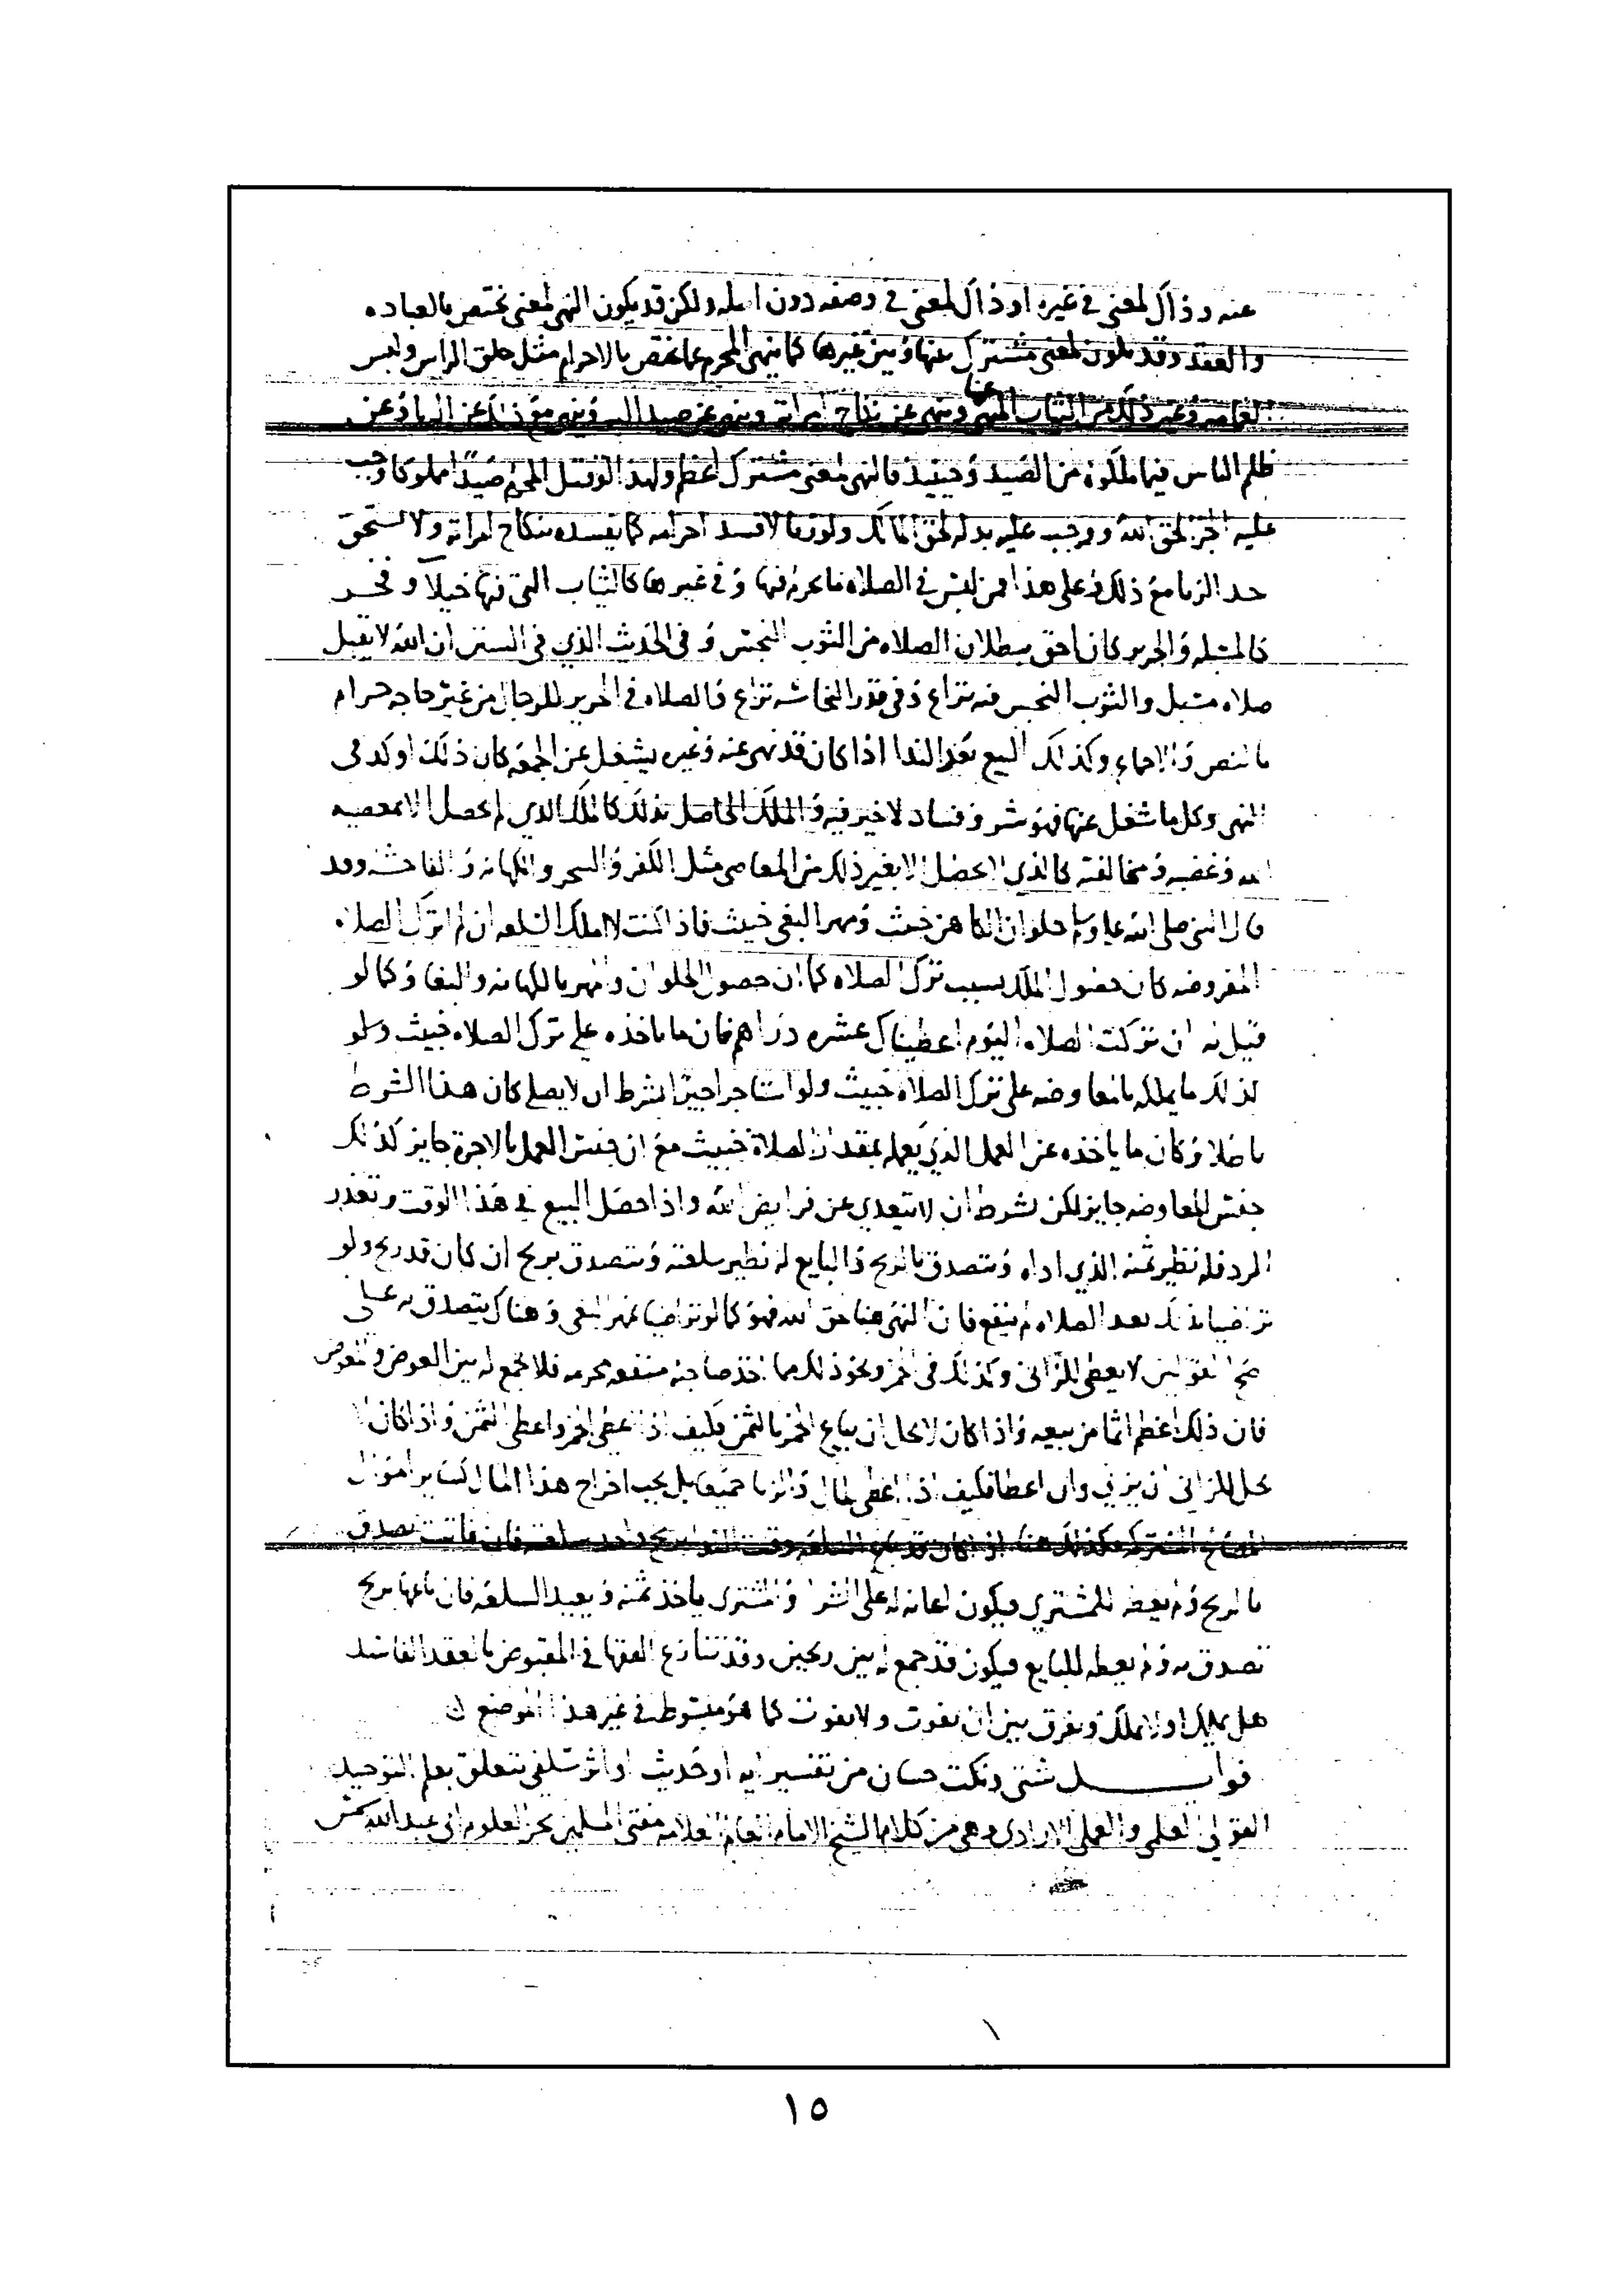 عنه وذاك لمعنى في غيره او ذاك لمعنى في وصفه دون اصله ولكن قد يكون النهي لمعنى يختص بالعباده
والعقد وقد يكون لمعنى مشترك بينها وبين غيرها كما ينهى المحرم عما يختص بالاحرام مثل حلق الراس ولبس
العمامه وغير ذلك من الثياب المنهي عنها وينهى عن نكاح امراته وينهى عن صيد البر وينهى مع ذلك عن الزنا وعن
ظلم الناس فيما ملكوه من الصيد وحينيذ فالنهي لمعنى مشترك اعظم ولهذا لو قتل المحرم صيدا مملوكا وجب
عليه الجزا لحق الله ووجب عليه بدله لحق المالك ولو زنا لافسد احرامه كما يفسده بنكاح امراته ولاستحق
حد الزنا مع ذلك وعلى هذا فمن لبس في الصلاه ما يحرم فيها وفي غيرها كالثياب التي فيها خيلا وفخر
كالمسبله والحرير كان احق ببطلان الصلاه من الثوب النجس وفي الحديث الذي في السنن ان الله لا يقبل
صلاه مسبل والثوب النجس فيه نزاع وفي قدر النجاسه نزاع والصلاه في الحرير للرجال من غير حاجه حرام
بالنص والاجماع وكذلك البيع بعد الندا اذا كان قد نهي عنه وغيره يشغل عن الجمعه كان ذلك اوكد في
النهي وكل ما شغل عنها فهو شر وفساد لا خير فيه والملك الحاصل بذلك كالملك الذي لم يحصل الا بمعصيه
الله وغضبه ومخالفته كالذي لا يحصل الا بغير ذلك من المعاصي مثل الكفر والسحر والكهانه والفاحشه وقد
قال النبي صلى الله عليه وسلم حلوان الكاهن خبيث ومهر البغي خبيث فاذا كنت لا املك السلعه ان لم اترك الصلاه
المفروضه كان حصول الملك بسبب ترك الصلاه كما ان حصول الحلوان والمهر بالكهانه والبغا وكما لو
قيل له ان تركت الصلاه اليوم اعطيناك عشره دراهم فان ما ياخذه على ترك الصلاه خبيث ولو
كذلك ما يملكه بالمعاوضه على ترك الصلاه خبيث ولو استاجر اجيرا بشرط ان لا يصلي كان هذا الشرط
باطلا وكان ما ياخذه عن العمل الذي يعمله بمقدار الصلاة خبيث مع ان جنس العمل بالاجرة جايز كذلك
جنس المعاوضه جايز لكن بشرط ان لا يتعدى عن فرايض الله واذا حصل البيع في هذا الوقت وتعذر
الرد فله نظير ثمنه الذي اداه ويتصدق بالربح والبايع له نظير سلعته ويتصدق بربح ان كان قد ربح ولو
تراضيا بذلك بعد الصلاه لم ينفع فان النهي هنا لحق الله فهو كما لو تراضيا بمهر البغي وهناك يتصدق به على
اصح القولين لا يعطى للزاني وكذلك في الخمر ونحو ذلك مما اخذ صاحبه منفعه محرمه فلا يجمع له بين العوض والمعوض
فان ذلك اعظم اثما من بيعه واذا كان لا يحل ان يباع الخمر بالثمن فكيف اذا اعطى الخمر واعطى الثمن واذا كان لا
يحل للزاني ان يزني وان اعطا فكيف اذا اعطي المال والزنا جميعا بل يجب اخراج هذا المال كساير اموال
المصالح المشتركه فكذلك هنا اذا كان قد باع السلعه وقت الندا بربح واحد سلعته فان فاتت تصدق
بالربح ولم يعطه للمشتري فيكون اعانه له على الشر والمشتري ياخذ ثمنه ويعيد السلعه فان باعها بربح
تصدق به ولم يعطه للبايع فيكون قد جمع له بين ربحين وقد تنازع الفقها في المقبوض بالعقد الفاسد
هل يملك او لا يملك ويفرق بين ان يفوت ولا يفوت كما هو مبسوط في غير هذا الموضع
فوايد شتى ونكت حسان من تفسير ايه او حديث او اثر سلفي تتعلق بعلم التوحيد
القولي العلمي والعملي الارادي وهي من كلام الشيخ الامام العالم العلامه مفتي المسلمين بحر العلوم ابي عبد الله شمس
١٥